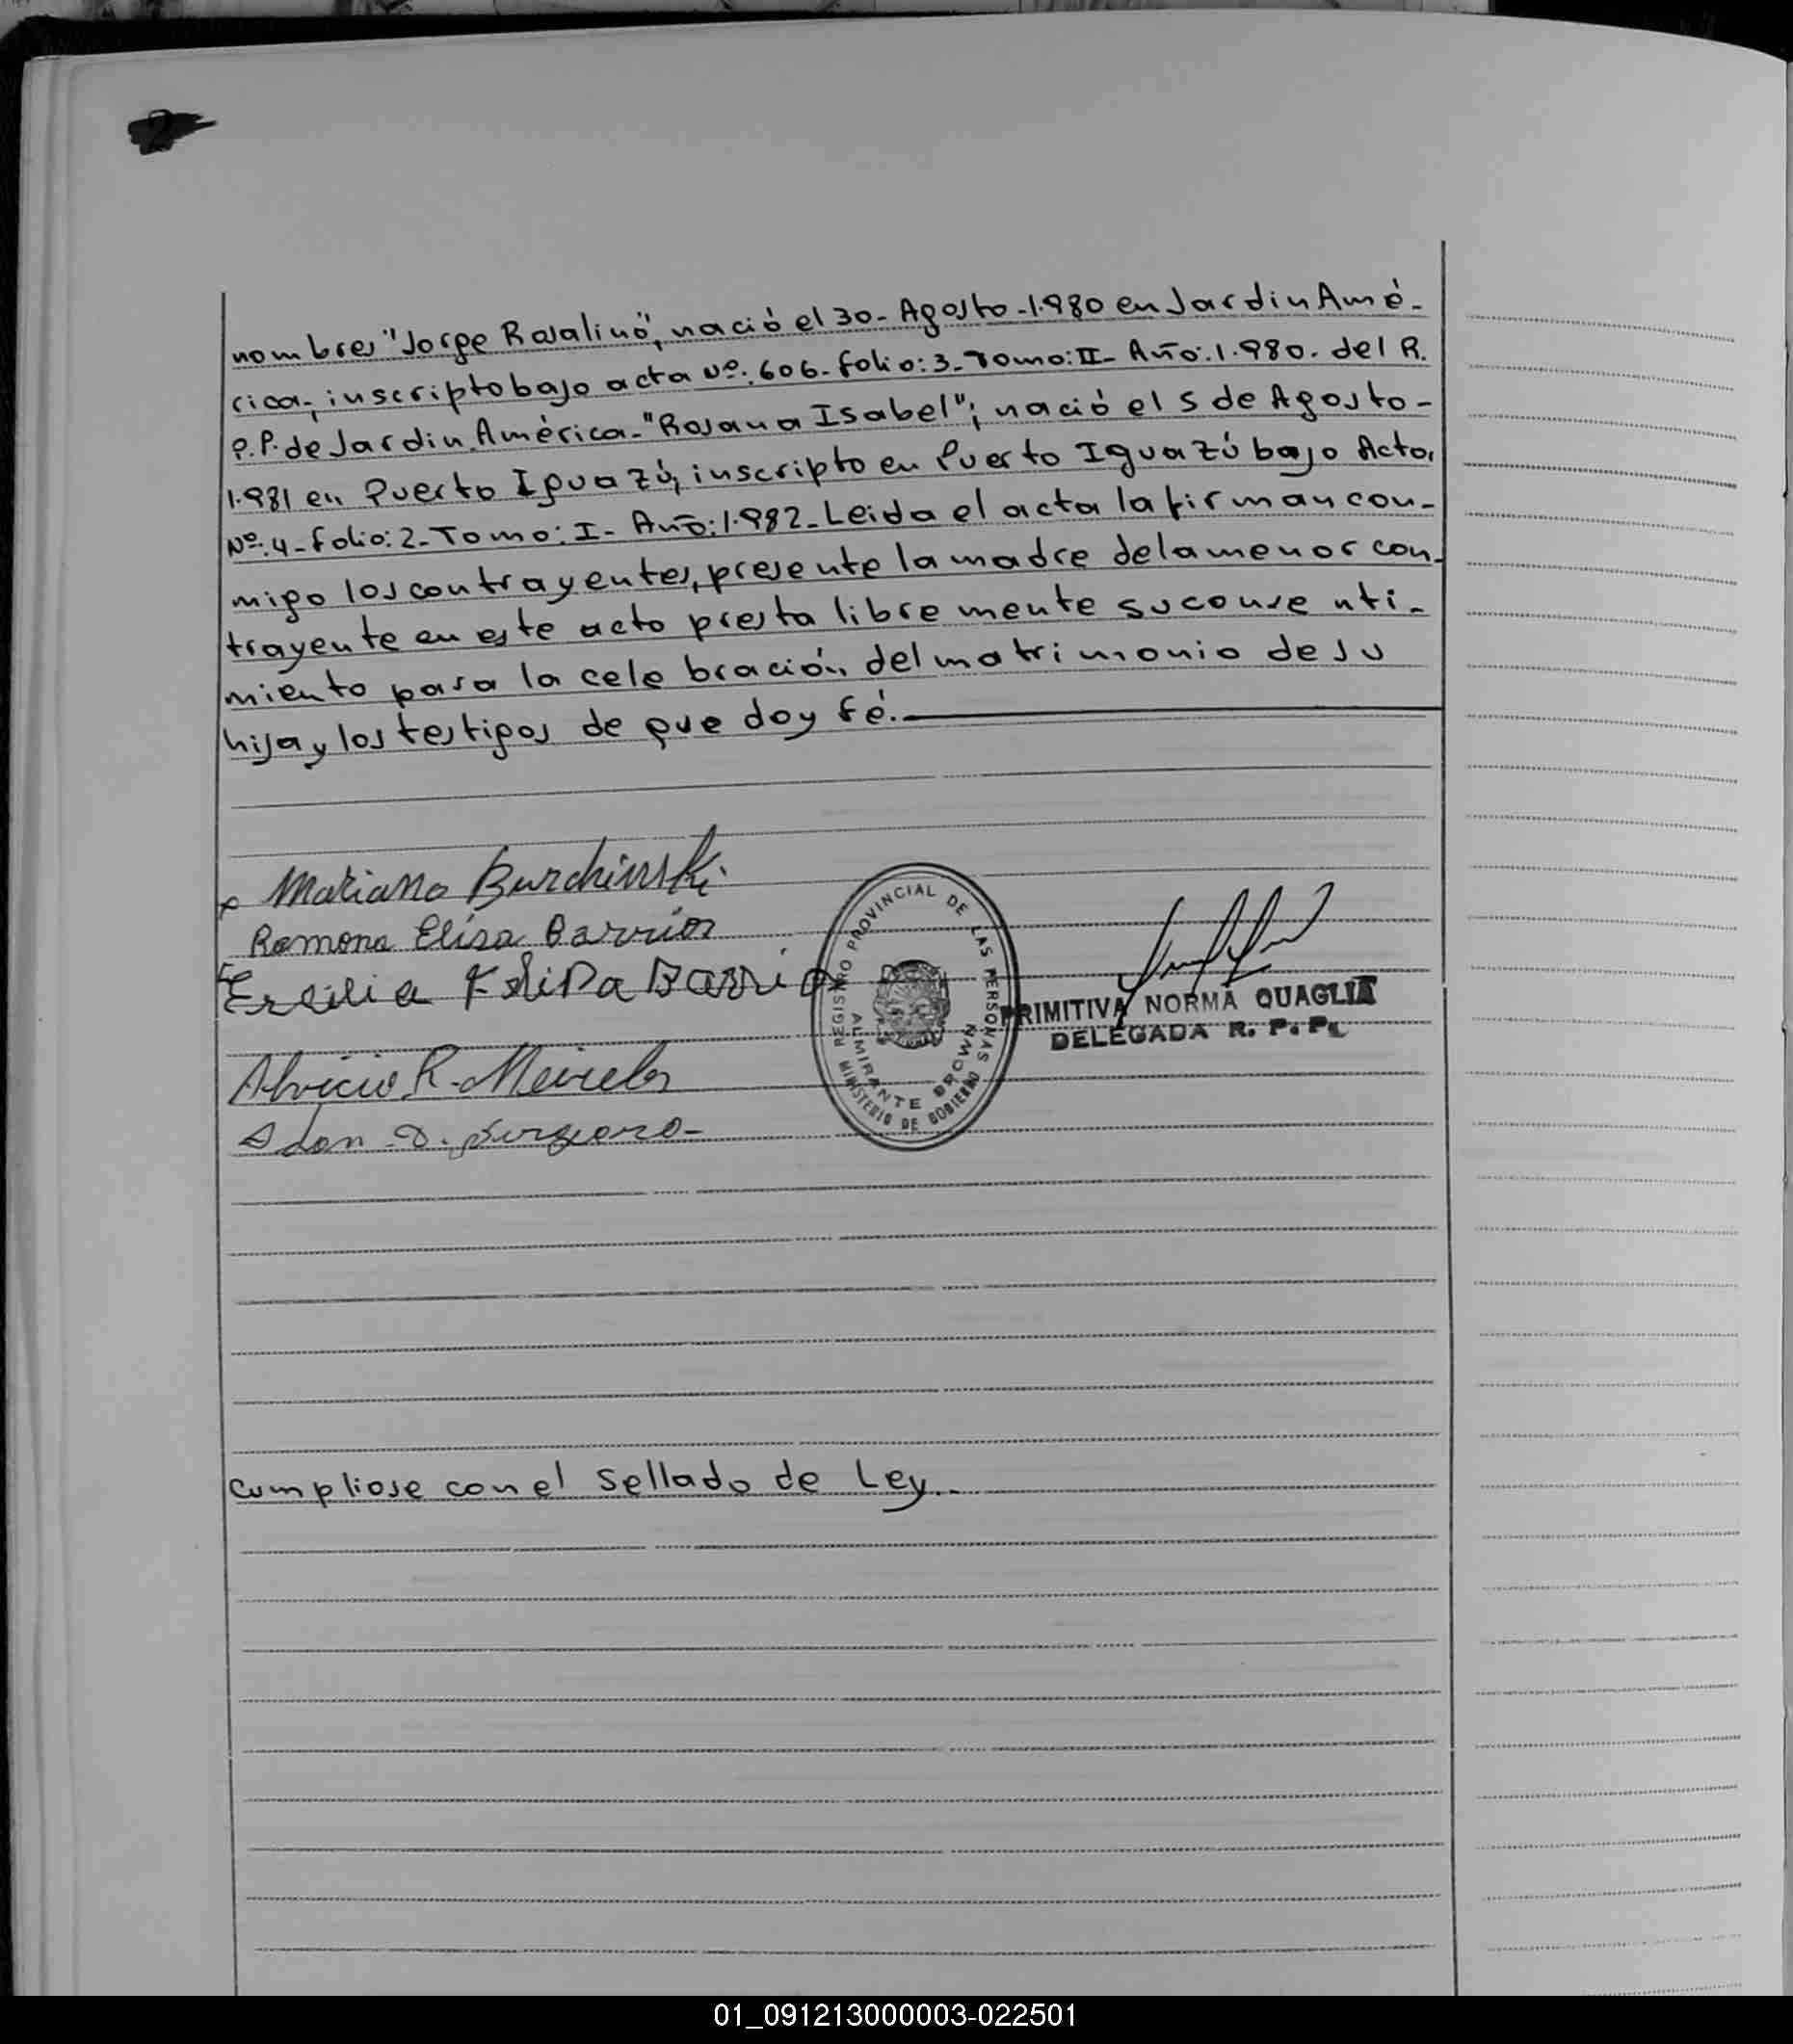 2
nombres "Jorge Rosalino", nació el 30- Agosto -1.980 en Jardin Amé-
rica-, inscripto bajo acta Nº: 606- folio: 3- Tomo: II- Año: 1.980. del R.
P. P. de Jardin América- "Rosana Isabel"; nació el 5 de Agosto -
1.981 en Puerto Iguazú, inscripto en Puerto Iguazú bajo Acta
Nº: 4- folio: 2- Tomo: I- Año: 1.982- Leida el acta la firman con-
migo los contrayentes, presente la madre de la menor con-
trayente en este acto presta libremente su consenti-
miento para la celebración del matrimonio de su
hija y los testigos de que doy fé.-
Mariano Burchinski
Ramona Elisa Barrios
Ercilia Felipa Barrio
REGISTRO PROVINCIAL DE LAS PERSONAS
ALMIRANTE BROWN
MINISTERIO DE GOBIERNO
PRIMITIVA NORMA QUAGLIA
DELEGADA R. P. P.
R.
D.
Cumpliose con el Sellado de Ley.-
01_091213000003-022501